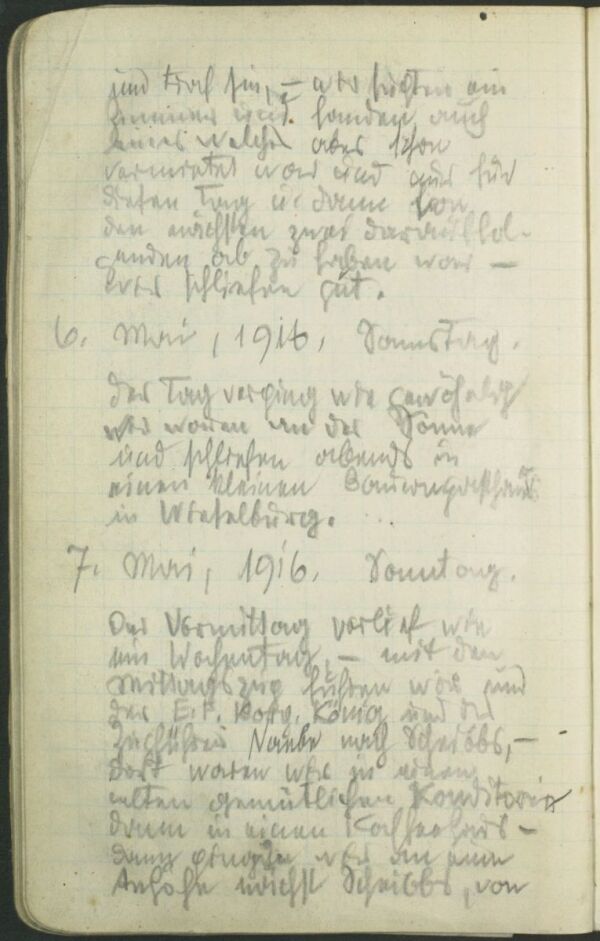 und traf sie, – wir suchten ein
Zimmer und fanden auch
eines welches aber schon
vermietet war und nur für
diesen Tag u. dann von
den nächsten zwei darauffol-
genden ab zu haben war –
wir schliefen gut.
6. Mai, 1916, Samstag.
Der Tag verging wie gewöhnlich
wir waren an der Sonne
und schliefen abends in
einen kleinen Bauerngasthaus
in Wieselburg.
7. Mai, 1916. Sonntag.
Der Vormittag verlief wie
ein Wochentag, – mit dem
Mittagszug fuhren wir und
der E.F. Korp. König und der
Zugführer nach Scheibbs, –
dort waren wir in einem
alten gemütlichen Konditorei
dann in einen Kaffeehaus –
dann gingen wir an eine
Anhöhe nächst Scheibbs, von